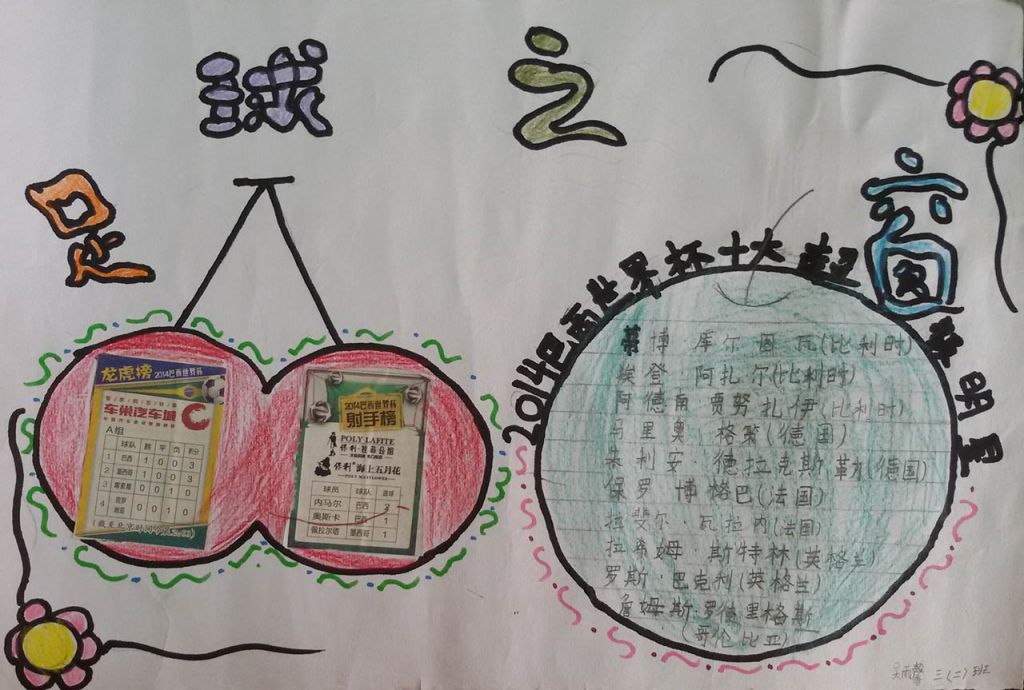 足球之窗
2014巴西世界杯十大超新明星
龙虎榜
2014巴西世界杯
车巢汽车城
A组
球队 胜 平 负 积分
1 巴西 1 0 0 3
2 墨西哥 1 0 0 3
3 喀麦隆 0 0 1 0
4 克罗地亚 0 0 1 0
2014巴西世界杯
射手榜
POLY LAFITE
保利·拉菲公馆
保利 海上五月花
POLY MAYFLOWER
球员 球队 进球
内马尔 巴西 2
奥斯卡 巴西 1
佩拉尔塔 墨西哥 1
蒂博·库尔图瓦(比利时)
埃登·阿扎尔(比利时)
阿德南·贾努扎伊(比利时)
马里奥·格策(德国)
朱利安·德拉克斯勒(德国)
保罗·博格巴(法国)
拉斐尔·瓦拉内(法国)
拉希姆·斯特林(英格兰)
罗斯·巴克利(英格兰)
詹姆斯·罗德里格斯
(哥伦比亚)
吴雨馨 三(二)班